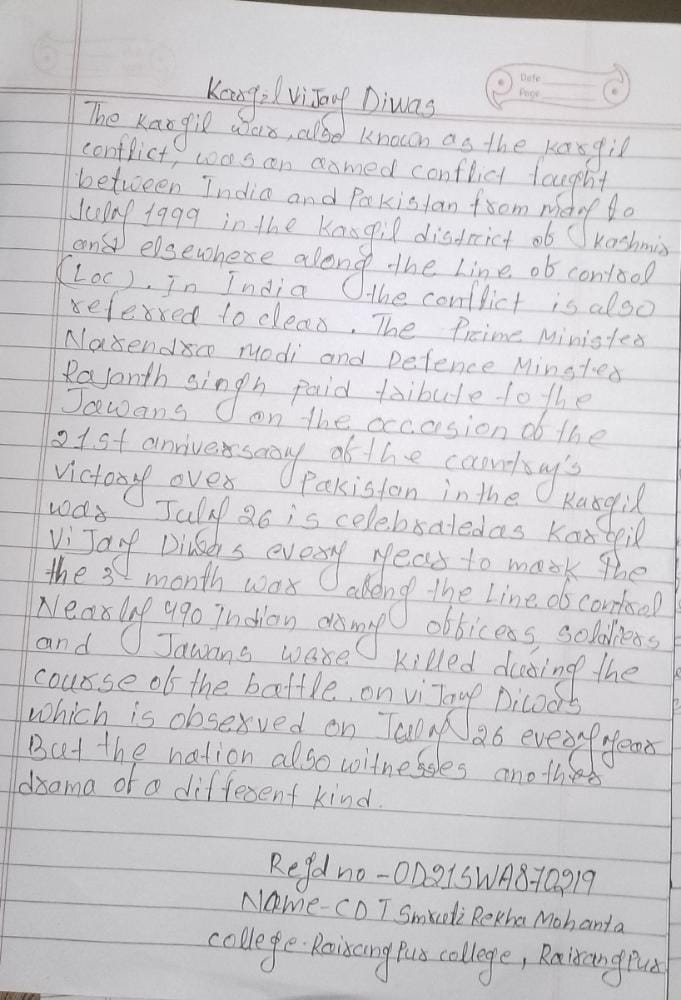 Date
Page
Kargil Vijay Diwas
The Kargil war, also known as the kargil
conflict, was an armed conflict fought
between India and Pakistan from may to
July 1999 in the Kargil district of Kashmir
and elsewhere along the Line of control
(Loc). In India the conflict is also
referred to clear. The Prime Minister
Narendra Modi and Defence Minster
Rajanth singh paid tribute to the
Jawans on the occasion of the
21st anniversary of the country's
victory over Pakistan in the Kargil
war July 26 is celebratedas Kargil
Vijay Diwas every year to mark the
the 3 month war along the Line of control
Nearly 490 Indian army officers, soldiers
and Jawans were killed during the
course of the battle. on vijay Diwas
which is observed on July 26 every year
But the nation also witnesses another
drama of a different kind.
Regd no - OD21SWA870219
Name - CDT Smruti Rekha Mohanta
college - Rairangpur college, Rairangpur